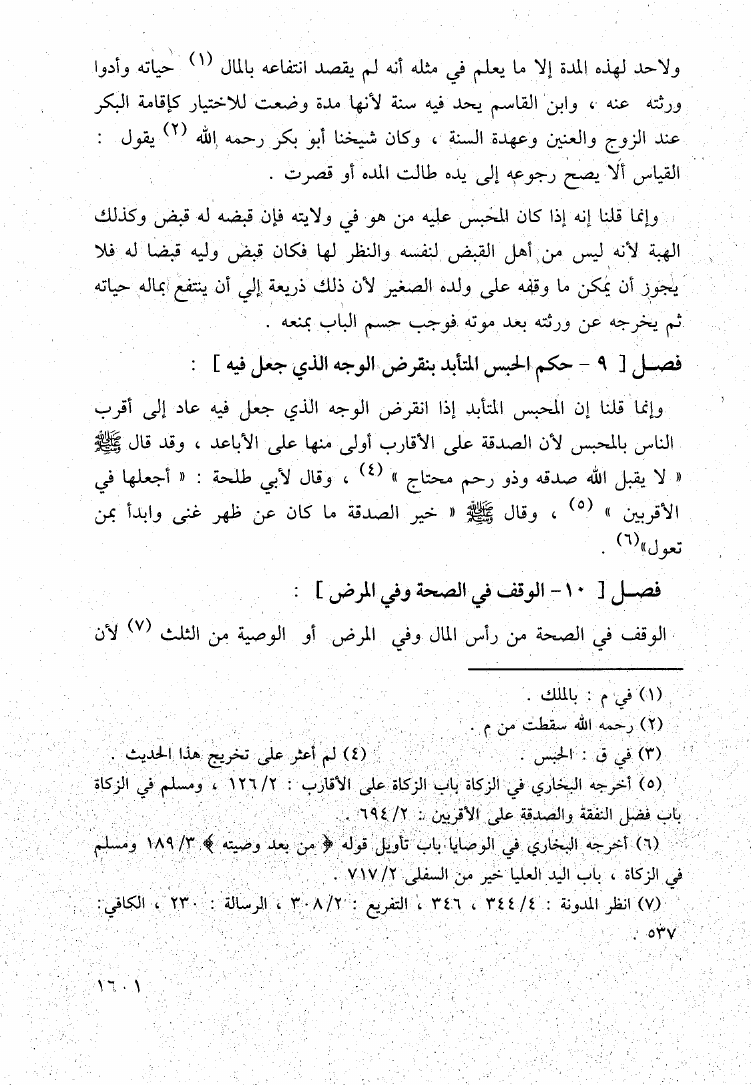 ولاحد لهذه المدة إلا ما يعلم في مثله أنه لم يقصد انتفاعه بالمال (١) حياته وأدوا
ورثته عنه ، وابن القاسم يحد فيه سنة لأنها مدة وضعت للاختيار كإقامة البكر
عند الزوج والعنين وعهدة السنة ، وكان شيخنا أبو بكر رحمه الله (٢) يقول :
القياس ألا يصح رجوعه إلى يده طالت المده أو قصرت .
وإنما قلنا إنه إذا كان المحبس عليه من هو في ولايته فإن قبضه له قبض وكذلك
الهبة لأنه ليس من أهل القبض لنفسه والنظر لها فكان قبض وليه قبضا له فلا
يجوز أن يمكن ما وقفه على ولده الصغير لأن ذلك ذريعة إلي أن ينتفع بماله حياته
ثم يخرجه عن ورثته بعد موته فوجب حسم الباب بمنعه .
فصل [ ٩ - حكم الحبس المتأبد بنقرض الوجه الذي جعل فيه ] :
وإنما قلنا إن المحبس المتأبد إذا انقرض الوجه الذي جعل فيه عاد إلى أقرب
الناس بالمحبس لأن الصدقة على الأقارب أولى منها على الأباعد ، وقد قال ﷺ
« لا يقبل الله صدقه وذو رحم محتاج » (٤) ، وقال لأبي طلحة : « أجعلها في
الأقربين » (٥) ، وقال ﷺ « خير الصدقة ما كان عن ظهر غنى وابدأ بمن
تعول»(٦) .
فصل [ ١٠- الوقف في الصحة وفي المرض ] :
الوقف في الصحة من رأس المال وفي المرض أو الوصية من الثلث (٧) لأن
(١) في م : بالملك .
(٢) رحمه الله سقطت من م .
(٣) في ق : الحبس . (٤) لم أعثر على تخريج هذا الحديث .
(٥) أخرجه البخاري في الزكاة باب الزكاة على الأقارب : ١٢٦/٢ ، ومسلم في الزكاة
باب فضل النفقة والصدقة على الأقربين : ٦٩٤/٢ .
(٦) أخرجه البخاري في الوصايا باب تأويل قوله ﴿ من بعد وصيته ﴾ ١٨٩/٣ ومسلم
في الزكاة ، باب اليد العليا خير من السفلى ٧١٧/٢ .
(٧) انظر المدونة : ٣٤٤/٤ ، ٣٤٦ ، التفريع : ٣٠٨/٢ ، الرسالة : ٢٣٠ ، الكافي:
٥٣٧ .
١٦٠١